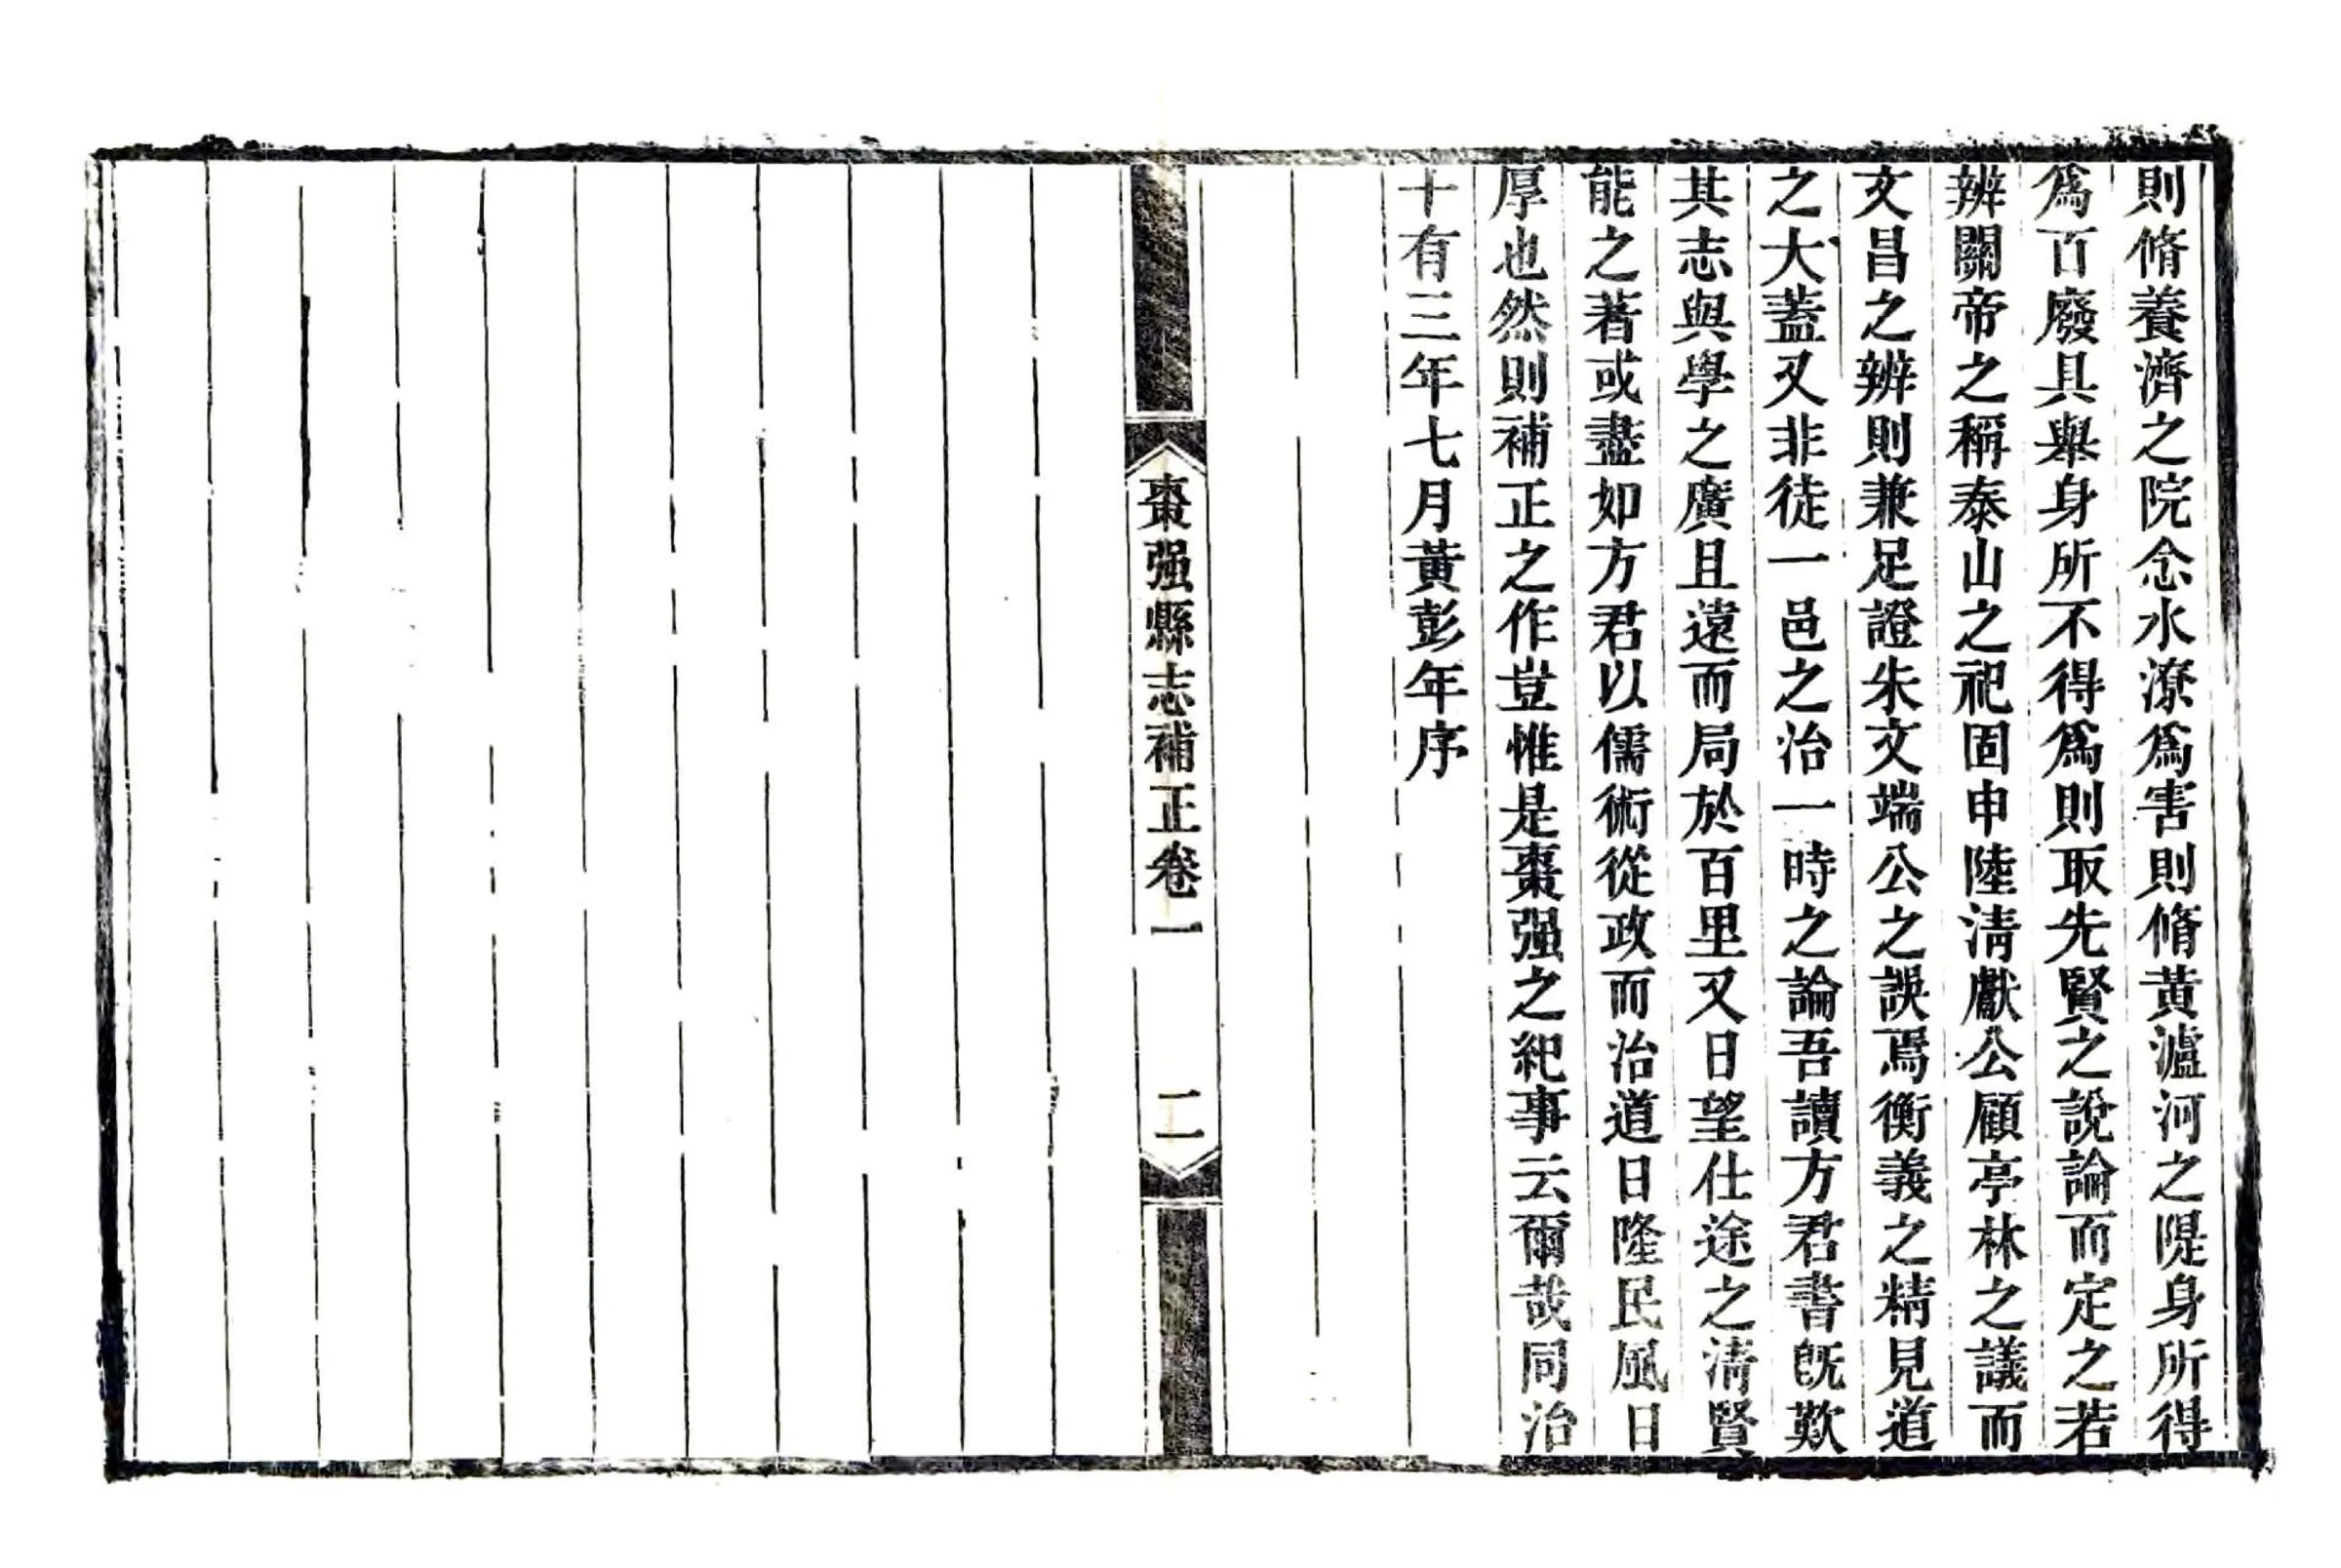 則脩養濟之院念水潦爲害則脩黃瀘河之隄身所得
爲百廢具舉身所不得爲則取先賢之說論而定之若
辨關帝之稱泰山之祀固申陸清獻公顧亭林之議而
文昌之辨則兼足證朱文端公之誤焉衡義之精見道
之大蓋又非徒一邑之治一時之論吾讀方君書旣歎
其志與學之廣且遠而局於百里又日望仕途之淸賢
能之著或盡如方君以儒術從政而治道日隆民風日
厚也然則補正之作豈惟是棗强之紀事云爾哉同治
十有三年七月黃彭年序
棗强縣志補正卷一
二